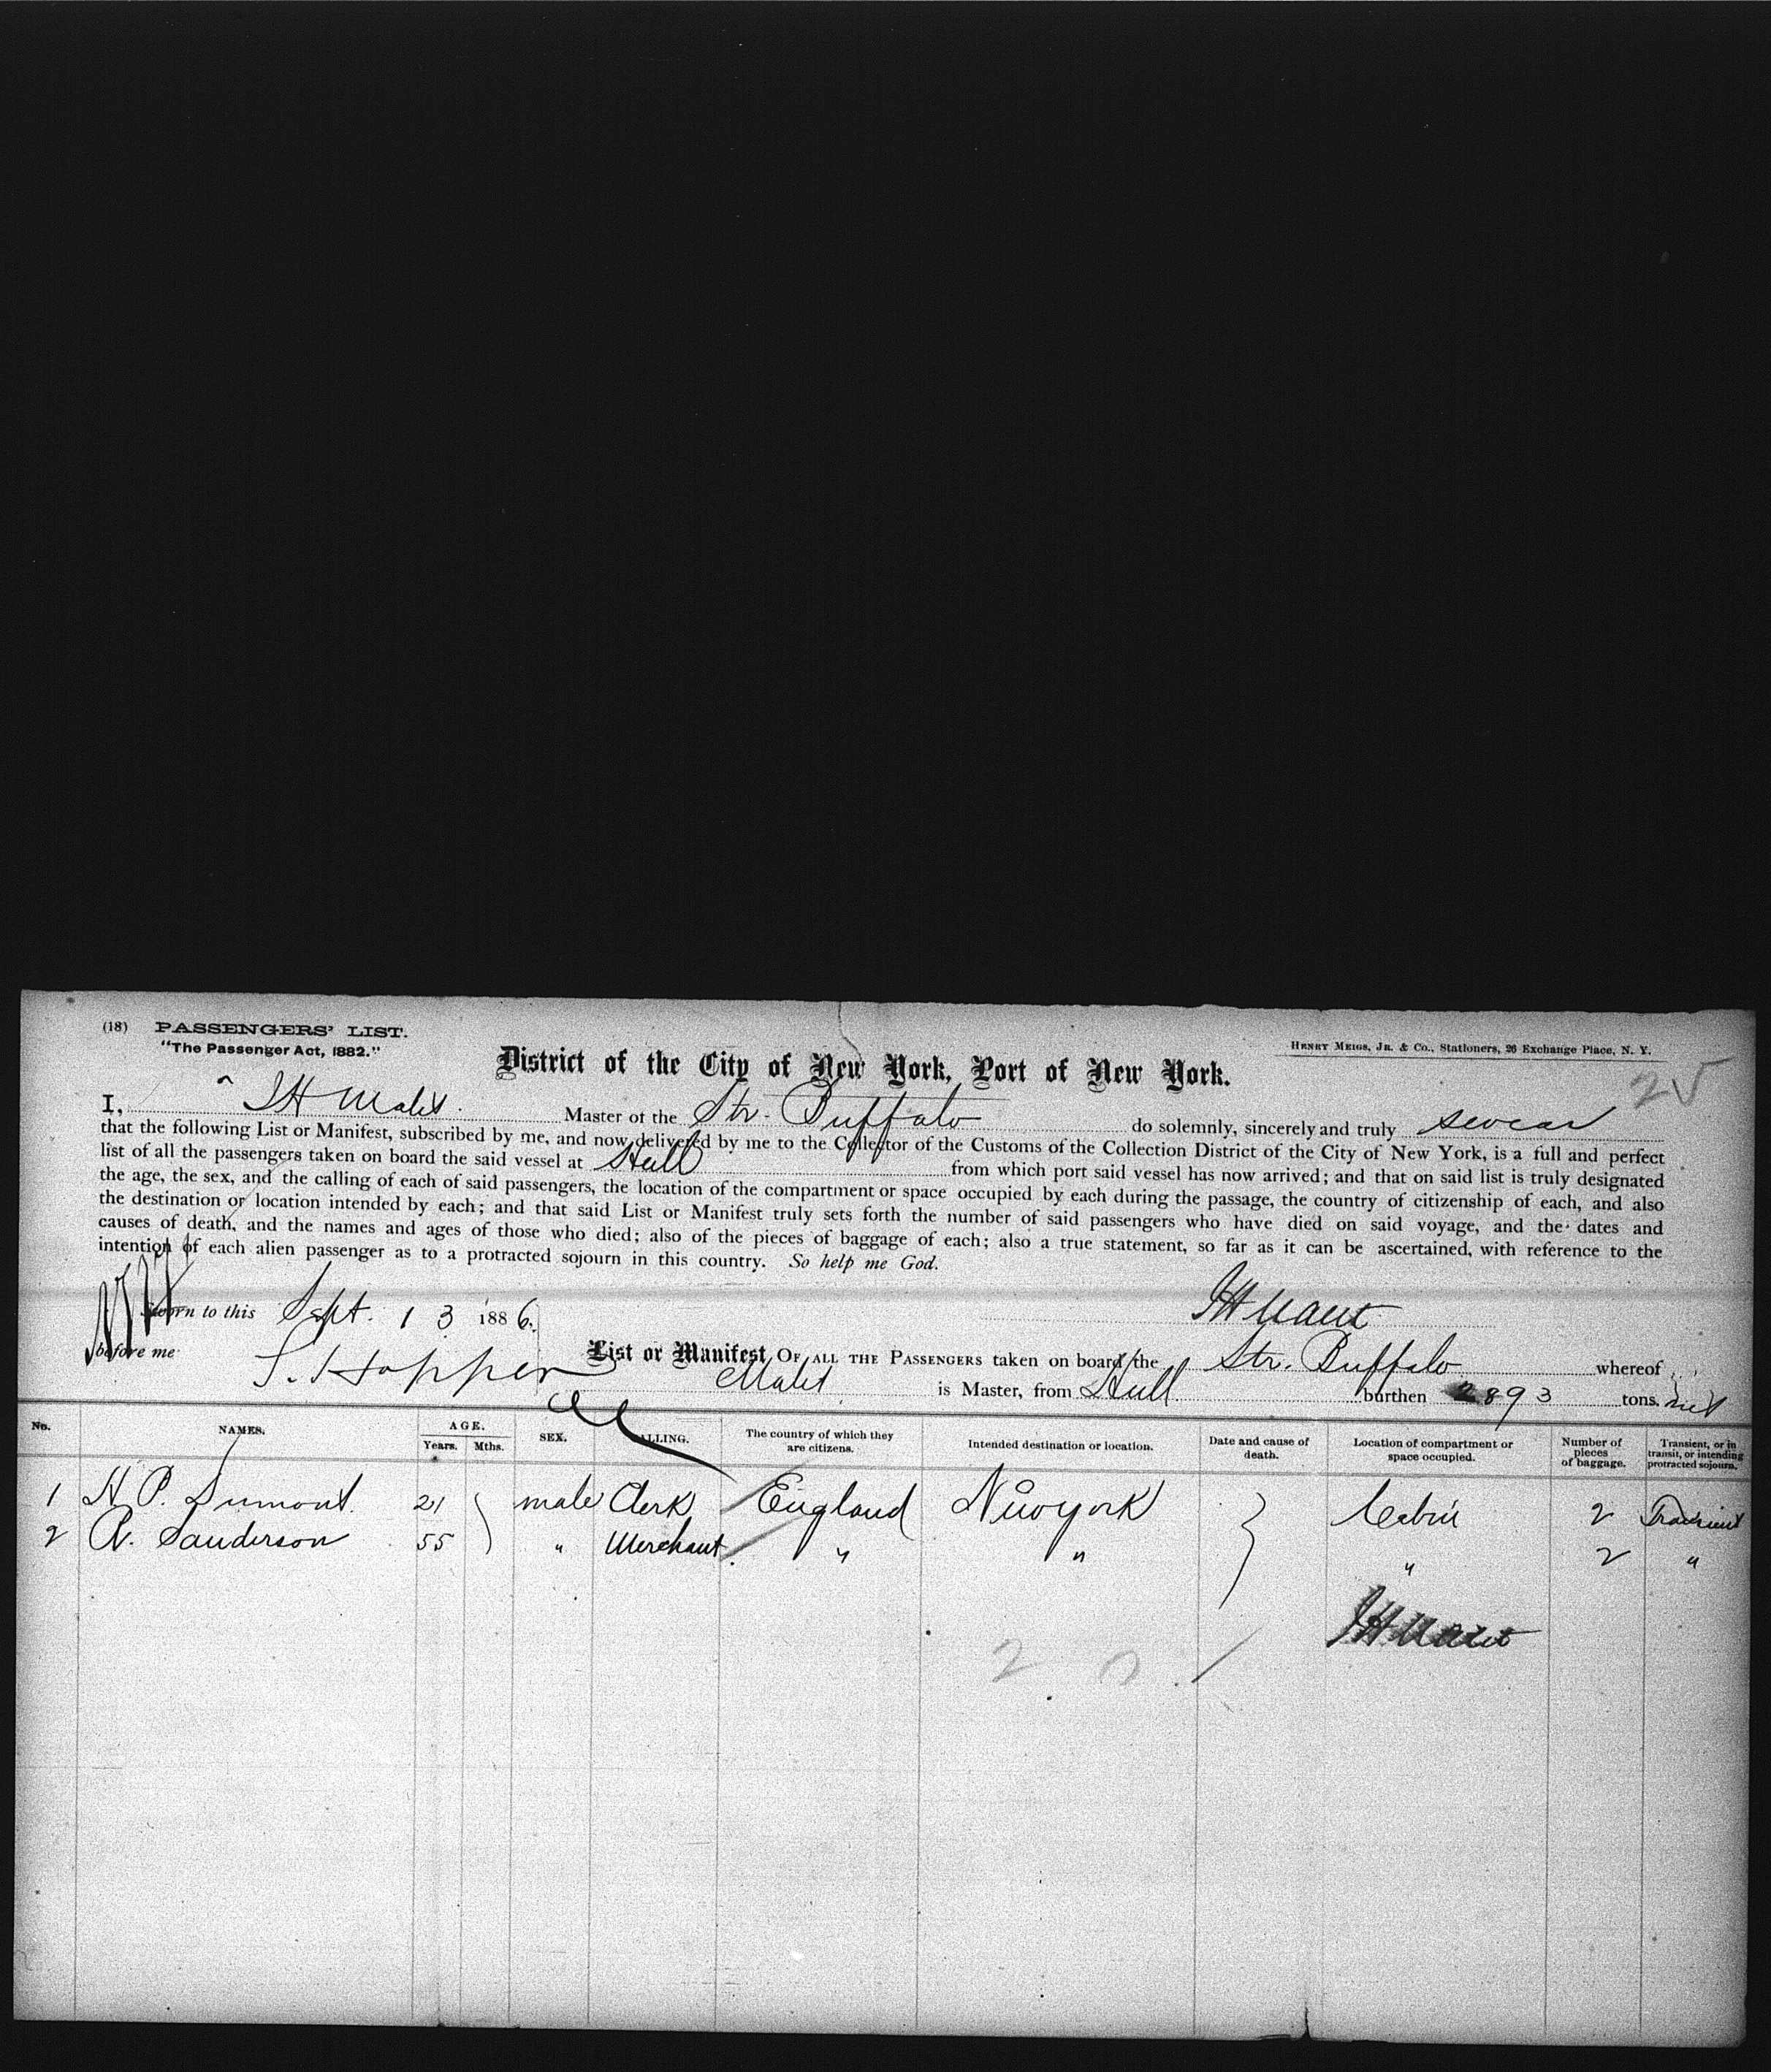 (18) PASSENGERS' LIST.
"The Passenger Act, 1882."
HENRY MEIGS, JR. & CO., Stationers, 26 Exchange Place, N. Y.
District of the City of New York, Port of New York.
25
I, J H Malet Master of the Str. Buffalo do solemnly, sincerely and truly swear
that the following List or Manifest, subscribed by me, and now delivered by me to the Collector of the Customs of the Collection District of the City of New York, is a full and perfect
list of all the passengers taken on board the said vessel at Hull from which port said vessel has now arrived; and that on said list is truly designated
the age, the sex, and the calling of each of said passengers, the location of the compartment or space occupied by each during the passage, the country of citizenship of each, and also
the destination or location intended by each; and that said List or Manifest truly sets forth the number of said passengers who have died on said voyage, and the dates and
causes of death, and the names and ages of those who died; also of the pieces of baggage of each; also a true statement, so far as it can be ascertained, with reference to the
intention of each alien passenger as to a protracted sojourn in this country. So help me God.
Sworn to this Sept. 13 1886.
before me S. Hopper
List or Manifest OF ALL THE PASSENGERS taken on board the Str. Buffalo whereof
Malet is Master, from Hull burthen 2893 tons. net
No. NAMES. AGE. Years. Mths. SEX. CALLING. The country of which they are citizens. Intended destination or location. Date and cause of death. Location of compartment or space occupied. Number of pieces of baggage. Transient, or in transit, or intending protracted sojourn.
1 H P. Dumont. 21 male Clerk England New york Cabin 2 Transient
2 A. Sanderson 55 " Merchant. " " " 2 "
2